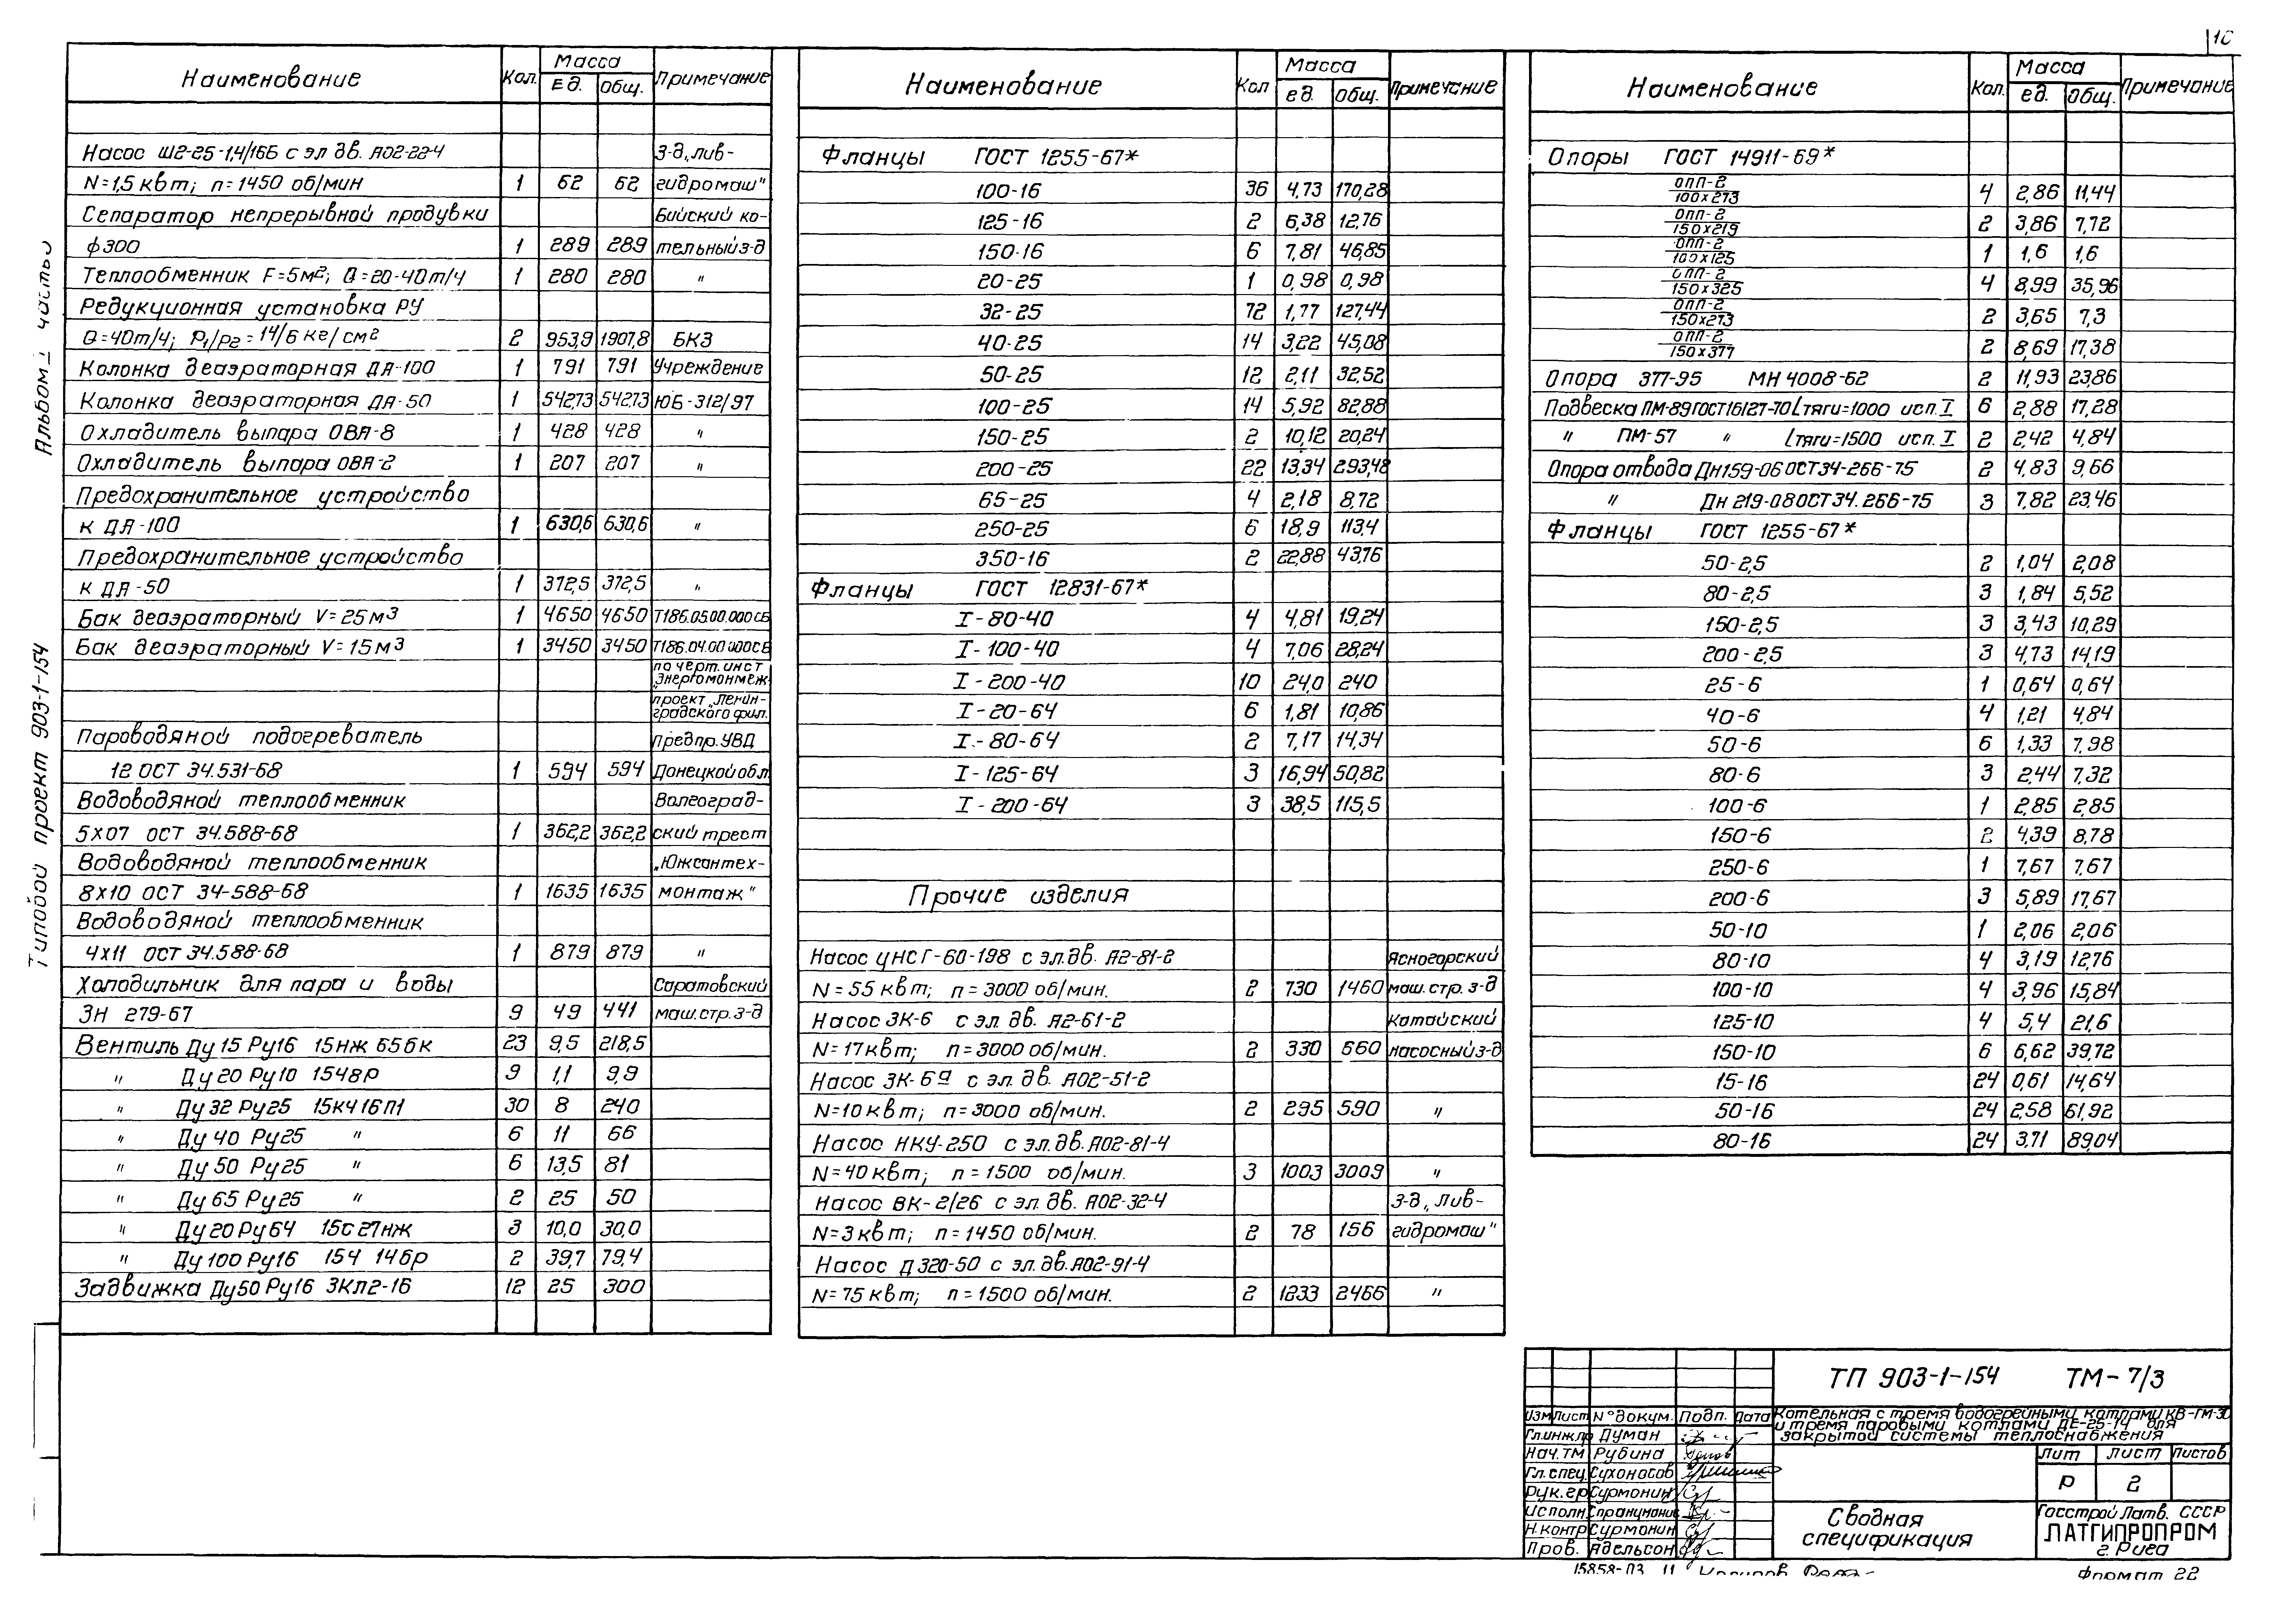 10
Альбом I часть 3
Типовой проект 903-1-154
Наименование Кол. Масса Ед. Общ. Примечание
Насос Ш2-25-1,4/16Б с эл дв. АО2-22-4 З-д „Лив-
N=1,5 квт; n=1450 об/мин 1 62 62 гидромаш"
Сепаратор непрерывной продувки Бийский ко-
ф300 1 289 289 тельный з-д
Теплообменник F=5м²; Q=20-40т/ч 1 280 280 "
Редукционная установка РУ
Q=40т/ч; P1/P2=14/6 кг/см² 2 953,9 1907,8 БКЗ
Колонка деаэраторная ДА-100 1 791 791 Учреждение
Колонка деаэраторная ДА-50 1 542,73 542,73 ЮБ-312/97
Охладитель выпара ОВА-8 1 428 428 "
Охладитель выпара ОВА-2 1 207 207 "
Предохранительное устройство
к ДА-100 1 630,6 630,6 "
Предохранительное устройство
к ДА-50 1 372,5 372,5 "
Бак деаэраторный V=25м³ 1 4650 4650 Т186.05.00.000СБ
Бак деаэраторный V=15м³ 1 3450 3450 Т186.04.00.000СБ
по черт. инст
„Энергомонтаж-
проект „Ленин-
градского фил.
Пароводяной подогреватель Предпр. УВД
12 ОСТ 34.531-68 1 594 594 Донецкой обл.
Водоводяной теплообменник Волгоград-
5х07 ОСТ 34.588-68 1 362,2 362,2 ский трест
Водоводяной теплообменник „Южсантех-
8х10 ОСТ 34-588-68 1 1635 1635 монтаж"
Водоводяной теплообменник
4х11 ОСТ 34.588-68 1 879 879 "
Холодильник для пара и воды Саратовский
ЗН 279-67 9 49 441 маш.стр. з-д
Вентиль Ду 15 Ру16 15нж 65бк 23 9,5 218,5
" Ду 20 Ру10 15ч8р 9 1,1 9,9
" Ду 32 Ру25 15кч16п1 30 8 240
" Ду 40 Ру25 " 6 11 66
" Ду 50 Ру25 " 6 13,5 81
" Ду 65 Ру25 " 2 25 50
" Ду 20 Ру64 15с27нж 3 10,0 30,0
" Ду 100 Ру16 15ч 14бр 2 39,7 79,4
Задвижка Ду50 Ру16 ЗКЛ2-16 12 25 300
Наименование Кол Масса ед. Общ. Примечание
Фланцы ГОСТ 1255-67*
100-16 36 4,73 170,28
125-16 2 6,38 12,76
150-16 6 7,81 46,85
20-25 1 0,98 0,98
32-25 72 1,77 127,44
40-25 14 3,22 45,08
50-25 12 2,11 32,52
100-25 14 5,92 82,88
150-25 2 10,12 20,24
200-25 22 13,34 293,48
65-25 4 2,18 8,72
250-25 6 18,9 113,4
350-16 2 22,88 43,76
Фланцы ГОСТ 12831-67*
I-80-40 4 4,81 19,24
I-100-40 4 7,06 28,24
I-200-40 10 24,0 240
I-20-64 6 1,81 10,86
I-80-64 2 7,17 14,34
I-125-64 3 16,94 50,82
I-200-64 3 38,5 115,5
Прочие изделия
Насос ЦНСГ-60-198 с эл.дв. А2-81-2 Ясногорский
N=55 квт; n=3000 об/мин. 2 730 1460 маш.стр. з-д
Насос 3К-6 с эл. дв. А2-61-2 Катайский
N=17квт; n=3000 об/мин. 2 330 660 насосный з-д
Насос 3К-6а с эл. дв. АО2-51-2
N=10 квт; n=3000 об/мин. 2 295 590 "
Насос НКУ-250 с эл.дв. АО2-81-4
N=40 квт; n=1500 об/мин. 3 1003 3009 "
Насос ВК-2/26 с эл. дв. АО2-32-4 З-д „Лив-
N=3 квт; n=1450 об/мин. 2 78 156 гидромаш"
Насос Д 320-50 с эл.дв. АО2-91-4
N=75 квт; n=1500 об/мин. 2 1233 2466 "
Наименование Кол. Масса ед. Общ. Примечание
Опоры ГОСТ 14911-69*
ОПП-2
100х273 4 2,86 11,44
ОПП-2
150х219 2 3,86 7,72
ОПП-2
100х125 1 1,6 1,6
ОПП-2
150х325 4 8,99 35,96
ОПП-2
150х273 2 3,65 7,3
ОПП-2
150х377 2 8,69 17,38
Опора 377-95 МН 4008-62 2 11,93 23,86
Подвеска ПМ-89 ГОСТ16127-70 Lтяги=1000 исп. I 6 2,88 17,28
" ПМ-57 " Lтяги=1500 исп. I 2 2,42 4,84
Опора отвода Дн159-06 ОСТ34-266-75 2 4,83 9,66
" Дн 219-08 ОСТ 34.266-75 3 7,82 23,46
Фланцы ГОСТ 1255-67*
50-2,5 2 1,04 2,08
80-2,5 3 1,84 5,52
150-2,5 3 3,43 10,29
200-2,5 3 4,73 14,19
25-6 1 0,64 0,64
40-6 4 1,21 4,84
50-6 6 1,33 7,98
80-6 3 2,44 7,32
100-6 1 2,85 2,85
150-6 2 4,39 8,78
250-6 1 7,67 7,67
200-6 3 5,89 17,67
50-10 1 2,06 2,06
80-10 4 3,19 12,76
100-10 4 3,96 15,84
125-10 4 5,4 21,6
150-10 6 6,62 39,72
15-16 24 0,61 14,64
50-16 24 2,58 61,92
80-16 24 3,71 89,04
ТП 903-1-154 ТМ-7/3
Изм Лист N° докум. Подп. Дата
Котельная с тремя водогрейными котлами КВ-ГМ-30
и тремя паровыми котлами ДЕ-25-14 для
закрытой системы теплоснабжения
Гл.инж.пр Думан
Нач.ТМ Рубина
Гл.спец. Сухоносов
Рук.гр Сурмонин
Исполн.
Н.контр Сурмонин
Пров. Адельсон
Лит Лист Листов
Р 2
Сводная
спецификация
Госстрой Латв. ССР
ЛАТГИПРОПРОМ
г. Рига
15858-03 11
Формат 22